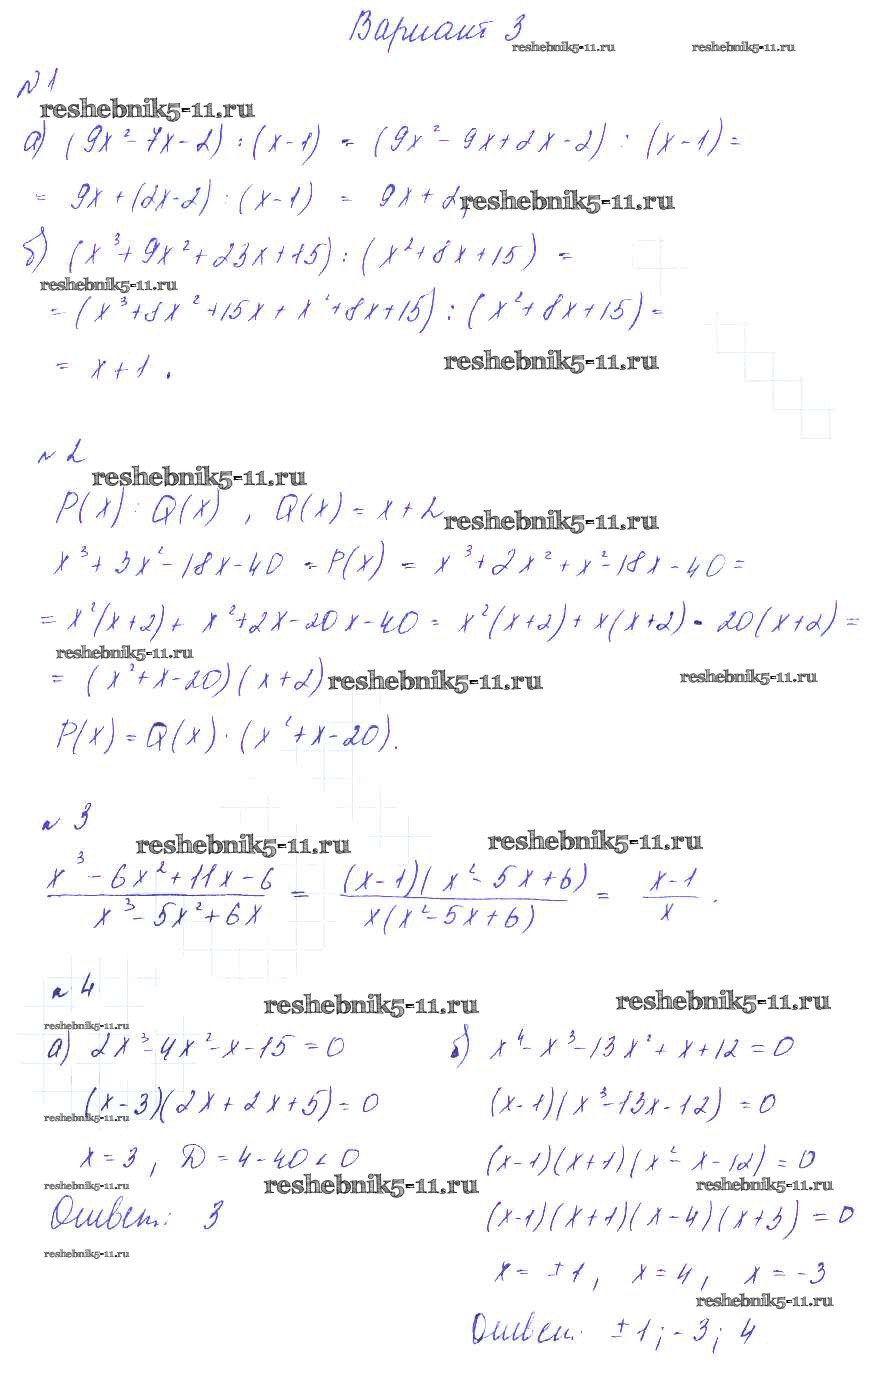 Вариант 3
reshebnik5-11.ru reshebnik5-11.ru
№1
reshebnik5-11.ru
а) (9x² - 7x - 2) : (x - 1) = (9x² - 9x + 2x - 2) : (x - 1) =
= 9x + (2x - 2) : (x - 1) = 9x + 2;
reshebnik5-11.ru
б) (x³ + 9x² + 23x + 15) : (x² + 8x + 15) =
reshebnik5-11.ru
= (x³ + 8x² + 15x + x² + 8x + 15) : (x² + 8x + 15) =
= x + 1.
reshebnik5-11.ru
№2
reshebnik5-11.ru
P(x) : Q(x), Q(x) = x + 2
reshebnik5-11.ru
x³ + 3x² - 18x - 40 = P(x) = x³ + 2x² + x² - 18x - 40 =
= x²(x + 2) + x² + 2x - 20x - 40 = x²(x + 2) + x(x + 2) - 20(x + 2) =
reshebnik5-11.ru
= (x² + x - 20)(x + 2)
reshebnik5-11.ru reshebnik5-11.ru
P(x) = Q(x) · (x² + x - 20).
№3
reshebnik5-11.ru reshebnik5-11.ru
(x³ - 6x² + 11x - 6)/(x³ - 5x² + 6x) = ((x - 1)(x² - 5x + 6))/(x(x² - 5x + 6)) = (x - 1)/x.
№4
reshebnik5-11.ru reshebnik5-11.ru
reshebnik5-11.ru
а) 2x³ - 4x² - x - 15 = 0
(x - 3)(2x + 2x + 5) = 0
reshebnik5-11.ru
x = 3, D = 4 - 40 < 0
reshebnik5-11.ru reshebnik5-11.ru
Ответ: 3
reshebnik5-11.ru
б) x⁴ - x³ - 13x² + x + 12 = 0
(x - 1)(x³ - 13x - 12) = 0
(x - 1)(x + 1)(x² - x - 12) = 0
reshebnik5-11.ru
(x - 1)(x + 1)(x - 4)(x + 3) = 0
x = ±1, x = 4, x = -3
reshebnik5-11.ru
Ответ: ±1; -3; 4